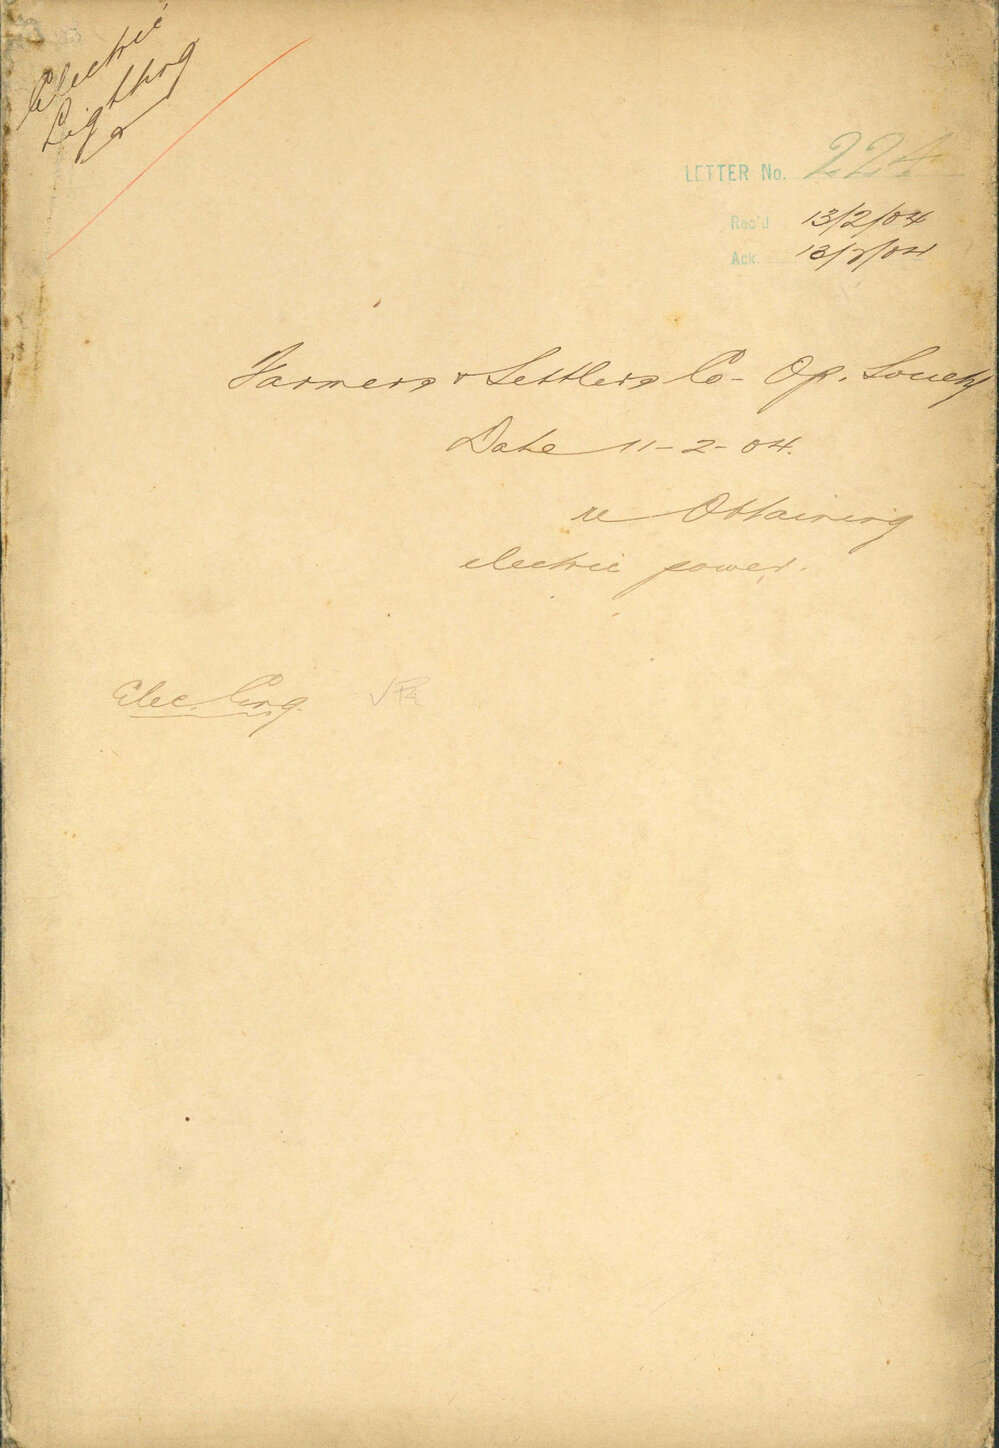 Electric
Lighting
LETTER No. 224
Rec'd 13/2/04
Ack. 13/2/04
Farmers & Settlers Co-Op. Society
Date 11-2-04.
re Obtaining
electric power.
Elec. Eng.